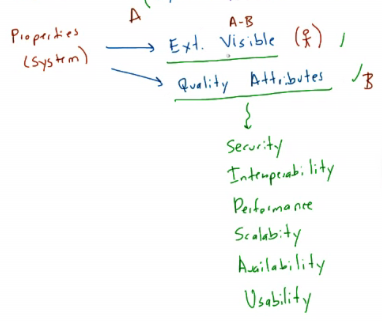 A
A-B
Properties
(System)
Ext. Visible
Quality Attributes
B
Security
Interoperability
Performance
Scalabity
Availability
Usability